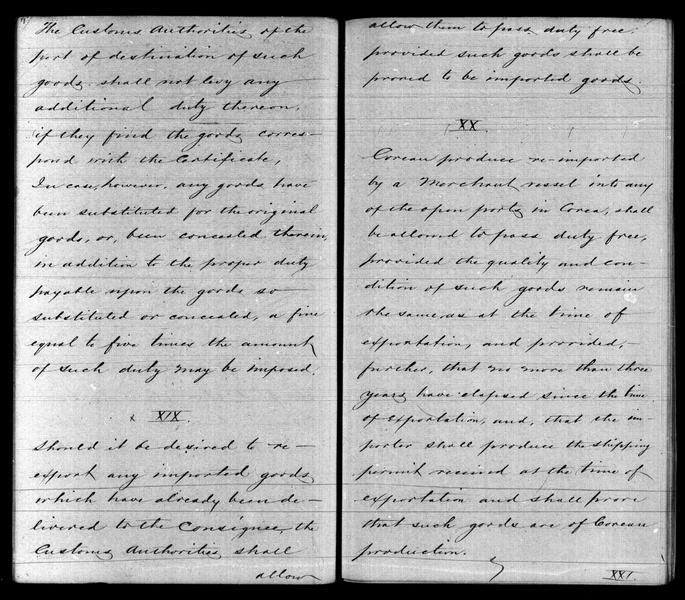 The Customs Authorities of the
port of destination of such
goods shall not levy any
additional duty thereon,
if they find the goods corres-
pond with the Certificate,
In case, however, any goods have
been substituted for the original
goods, or, been concealed therein,
in addition to the proper duty
payable upon the goods so
substituted or concealed, a fine
equal to five times the amount
of such duty may be imposed.
XIX.
Should it be desired to re-
export any imported goods
which have already been de-
livered to the Consignee, the
Customs Authorities shall
allow
allow them to pass duty free,
provided such goods shall be
proved to be imported goods.
XX.
Corean produce re-imported
by a Merchant vessel into any
of the open ports in Corea, shall
be allowed to pass duty free,
provided the quality and con-
dition of such goods remain
the same, as at the time of
exportation, and provided,
further, that no more than three
years have elapsed since the time
of exportation, and, that the im-
porter shall produce the shipping
permit received at the time of
exportation and shall prove
that such goods are of Corean
production.
XXI.